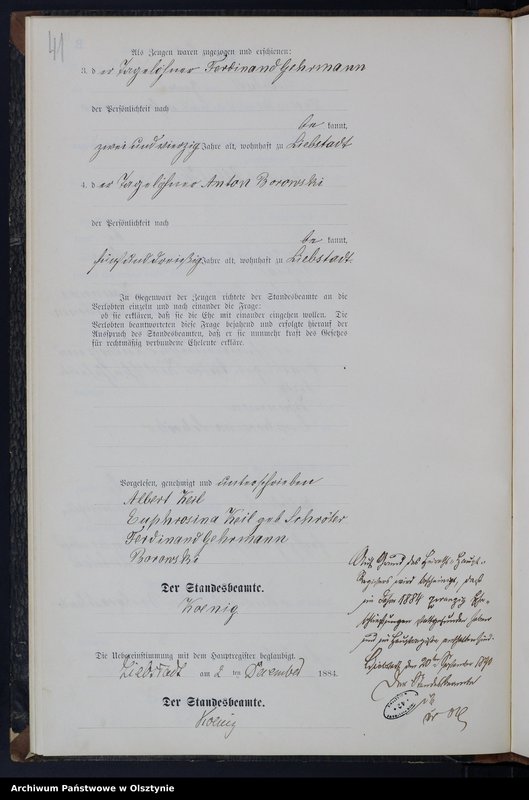 41
Als Zeugen waren zugezogen und erschienen:
3. der Tagelöhner Ferdinand Gehrmann
der Persönlichkeit nach
be kannt,
zwei und vierzig Jahre alt, wohnhaft zu Liebstadt
4. der Tagelöhner Anton Borowski
der Persönlichkeit nach
be kannt,
fünf und dreißig Jahre alt, wohnhaft zu Liebstadt.
In Gegenwart der Zeugen richtete der Standesbeamte an die
Verlobten einzeln und nach einander die Frage:
ob sie erklären, daß sie die Ehe mit einander eingehen wollen. Die
Verlobten beantworteten diese Frage bejahend und erfolgte hierauf der
Ausspruch des Standesbeamten, daß er sie nunmehr kraft des Gesetzes
für rechtmäßig verbundene Eheleute erkläre.
Vorgelesen, genehmigt und unterschrieben
Albert Keil
Euphrosina Keil geb Schröter
Ferdinand Gehrmann
Borowski
Der Standesbeamte.
Koenig
Die Uebereinstimmung mit dem Hauptregister beglaubigt.
Liebstadt am 2 ten Dezember 1884.
Der Standesbeamte.
Koenig
Auf Grund des Heirats-Haupt-
Registers wird bescheinigt, daß
im Jahre 1884 zwanzig Ehe-
schließungen stattgefunden haben
und im Hauptregister enthalten sind.
Liebstadt, den 20ten September 1890
Der Standesbeamte
Archiwum Państwowe w Olsztynie